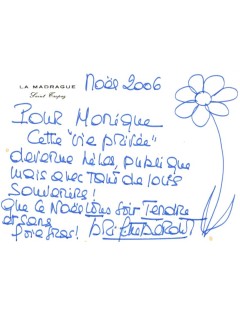 LA MADRAGUE
Saint Tropez
Noël 2006
Pour Monique
Cette "vie privée"
devenue hélas, publique
mais avec tant de jolis
souvenirs!
Que ce Noël vous soit Tendre
et sans
foie gras!